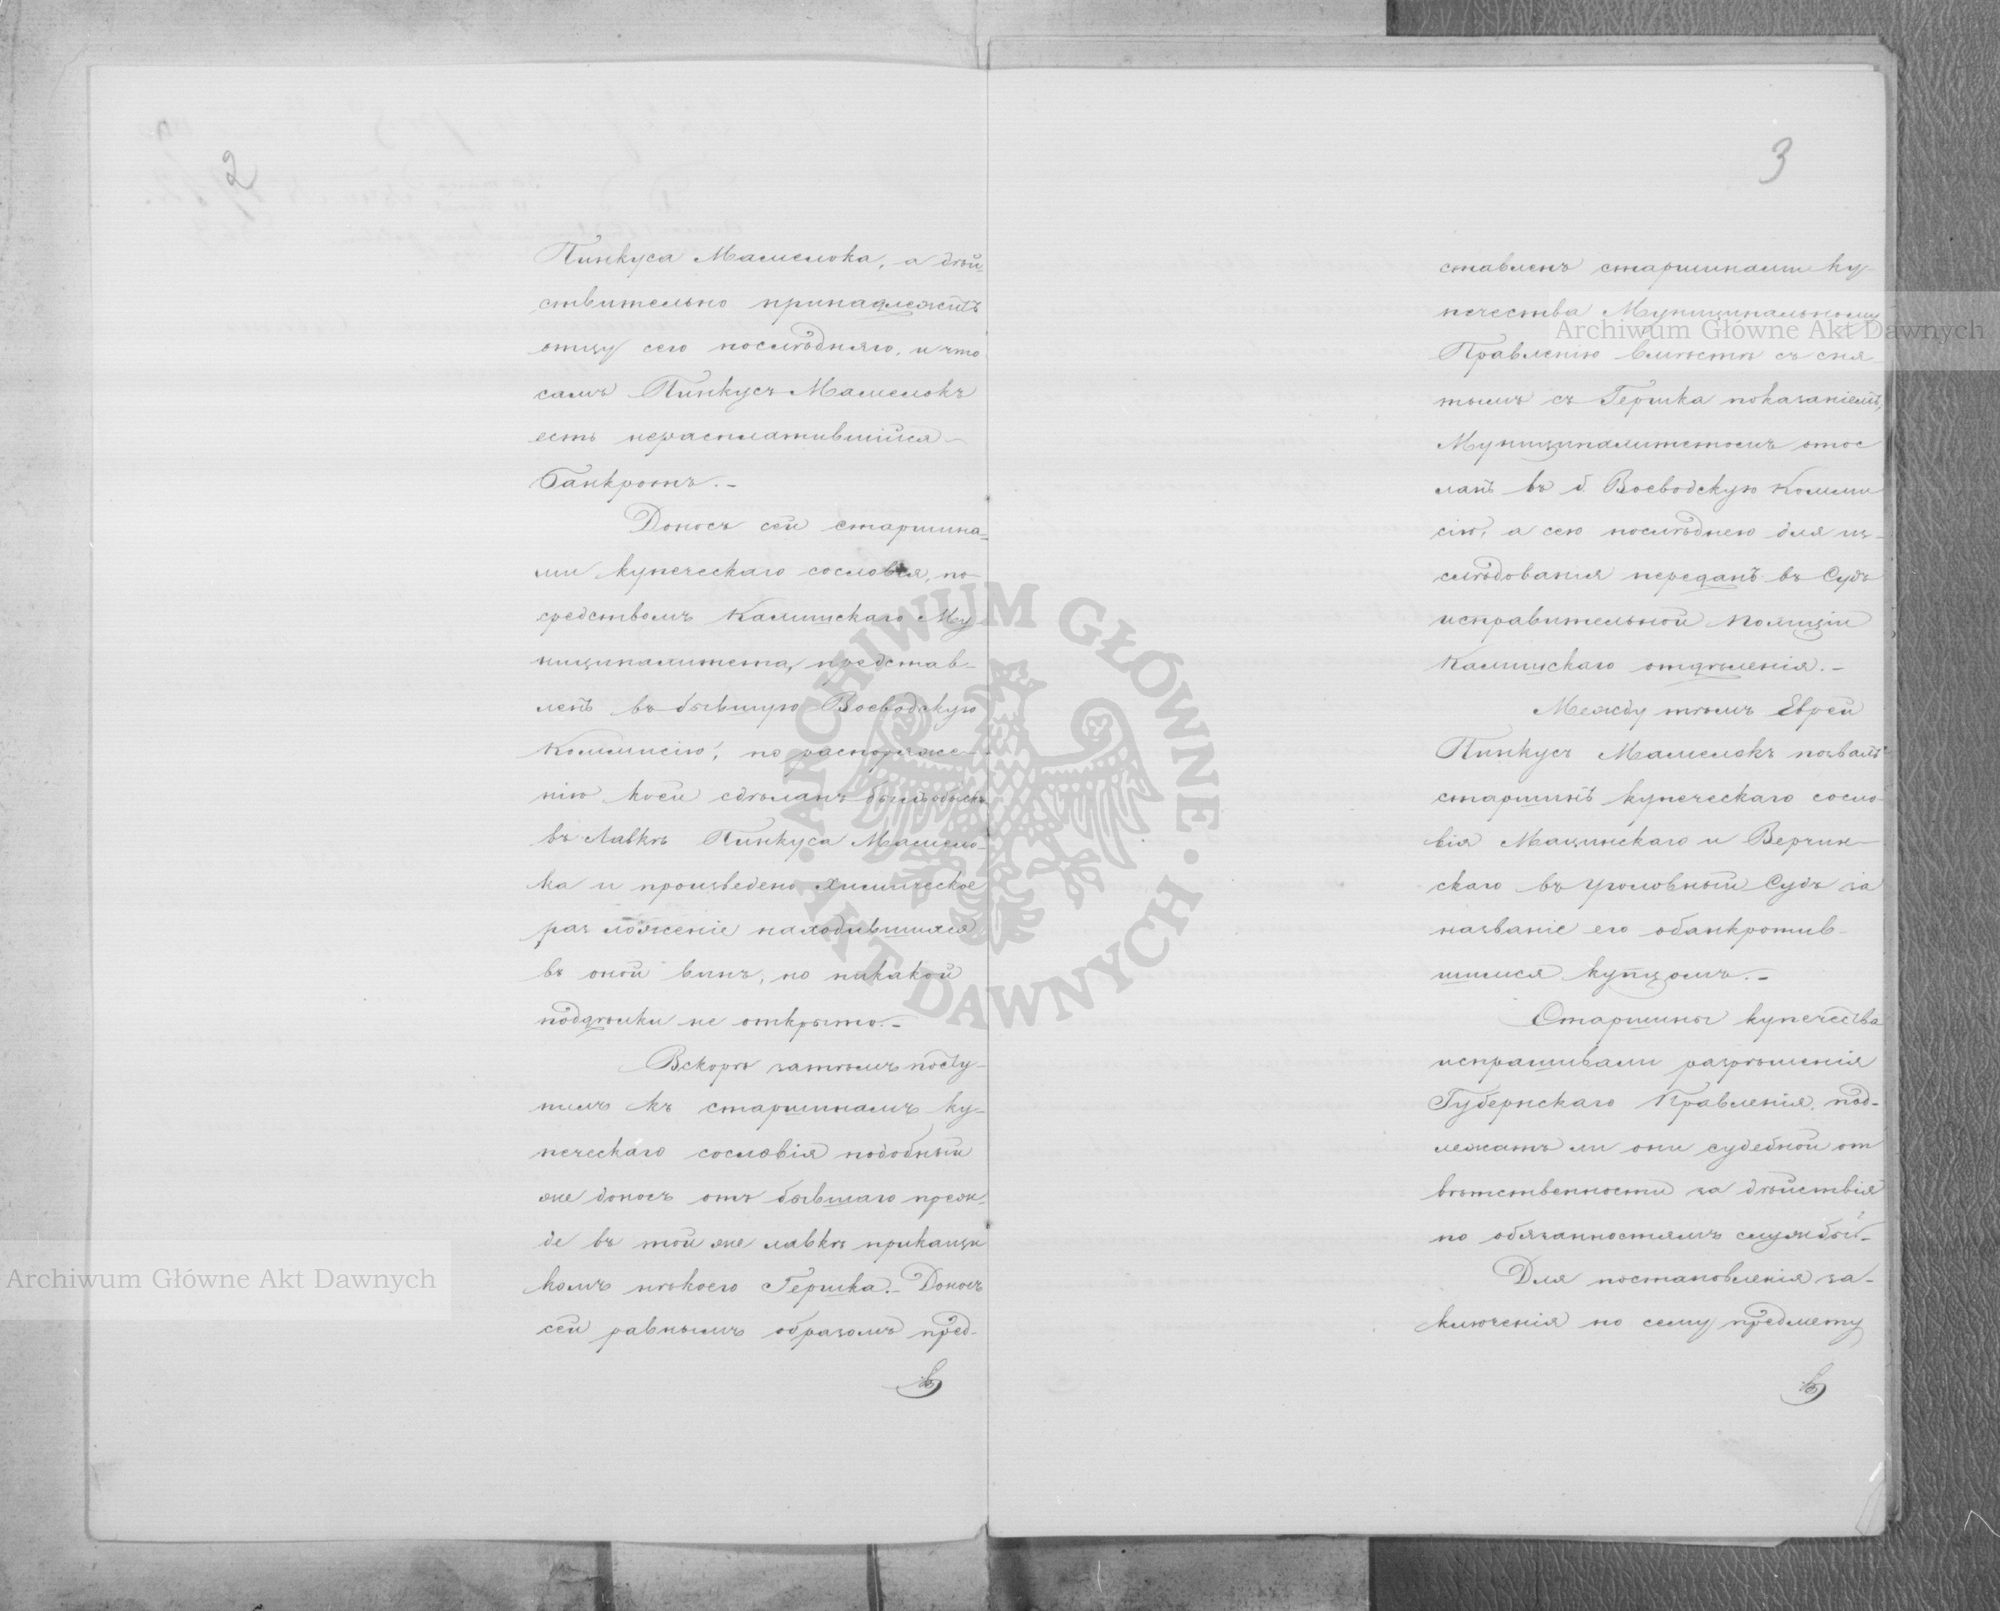 2
Пинкуса Мамелока, а дѣй-
ствительно принадлежитъ
отцу сего послѣдняго, и что
самъ Пинкусъ Мамелокъ
есть нерасплатившійся
банкротъ.-
Доносъ сей старшина-
ми купеческаго сословія, по-
средствомъ Калишскаго Му-
ниципалитета, представ-
ленъ въ бывшую Воеводскую
Коммисію, по распоряже-
нію коей сдѣланъ былъ обыскъ
въ лавкѣ Пинкуса Мамело-
ка и произведено химическое
разложеніе находившихся
въ оной винъ, но никакой
поддѣлки не открыто.-
Вскорѣ затѣмъ посту-
пилъ къ старшинамъ ку-
печескаго сословія подобный
же доносъ отъ бывшаго преж-
де въ той же лавкѣ прикащи
комъ нѣкоего Гершка.- Доносъ
сей равнымъ образомъ пред-
3
ставленъ старшинами ку-
печества Муниципальному
Правленію вмѣстѣ съ сня-
тымъ съ Гершка показаніемъ,
Муниципалитетомъ отос
ланъ въ б. Воеводскую Комми
сію, а сею послѣднею для из-
слѣдованія переданъ въ Судъ
исправительной Полиціи
Калишскаго отдѣленія.-
Между тѣмъ Еврей
Пинкусъ Мамелокъ позвалъ
старшинъ купеческаго сосло-
вія Мацинскаго и Верчин-
скаго въ уголовный Судъ за
названіе его обанкротив-
шимся купцомъ.-
Старшины купечества
испрашивали разрѣшенія
Губернскаго Правленія, под-
лежатъ ли они судебной от
вѣтственности за дѣйствія
по обязанностямъ службы.-
Для постановленія за-
ключенія по сему предмету
Archiwum Główne Akt Dawnych
Archiwum Główne Akt Dawnych
ARCHIWUM GŁÓWNE · AKT DAWNYCH ·